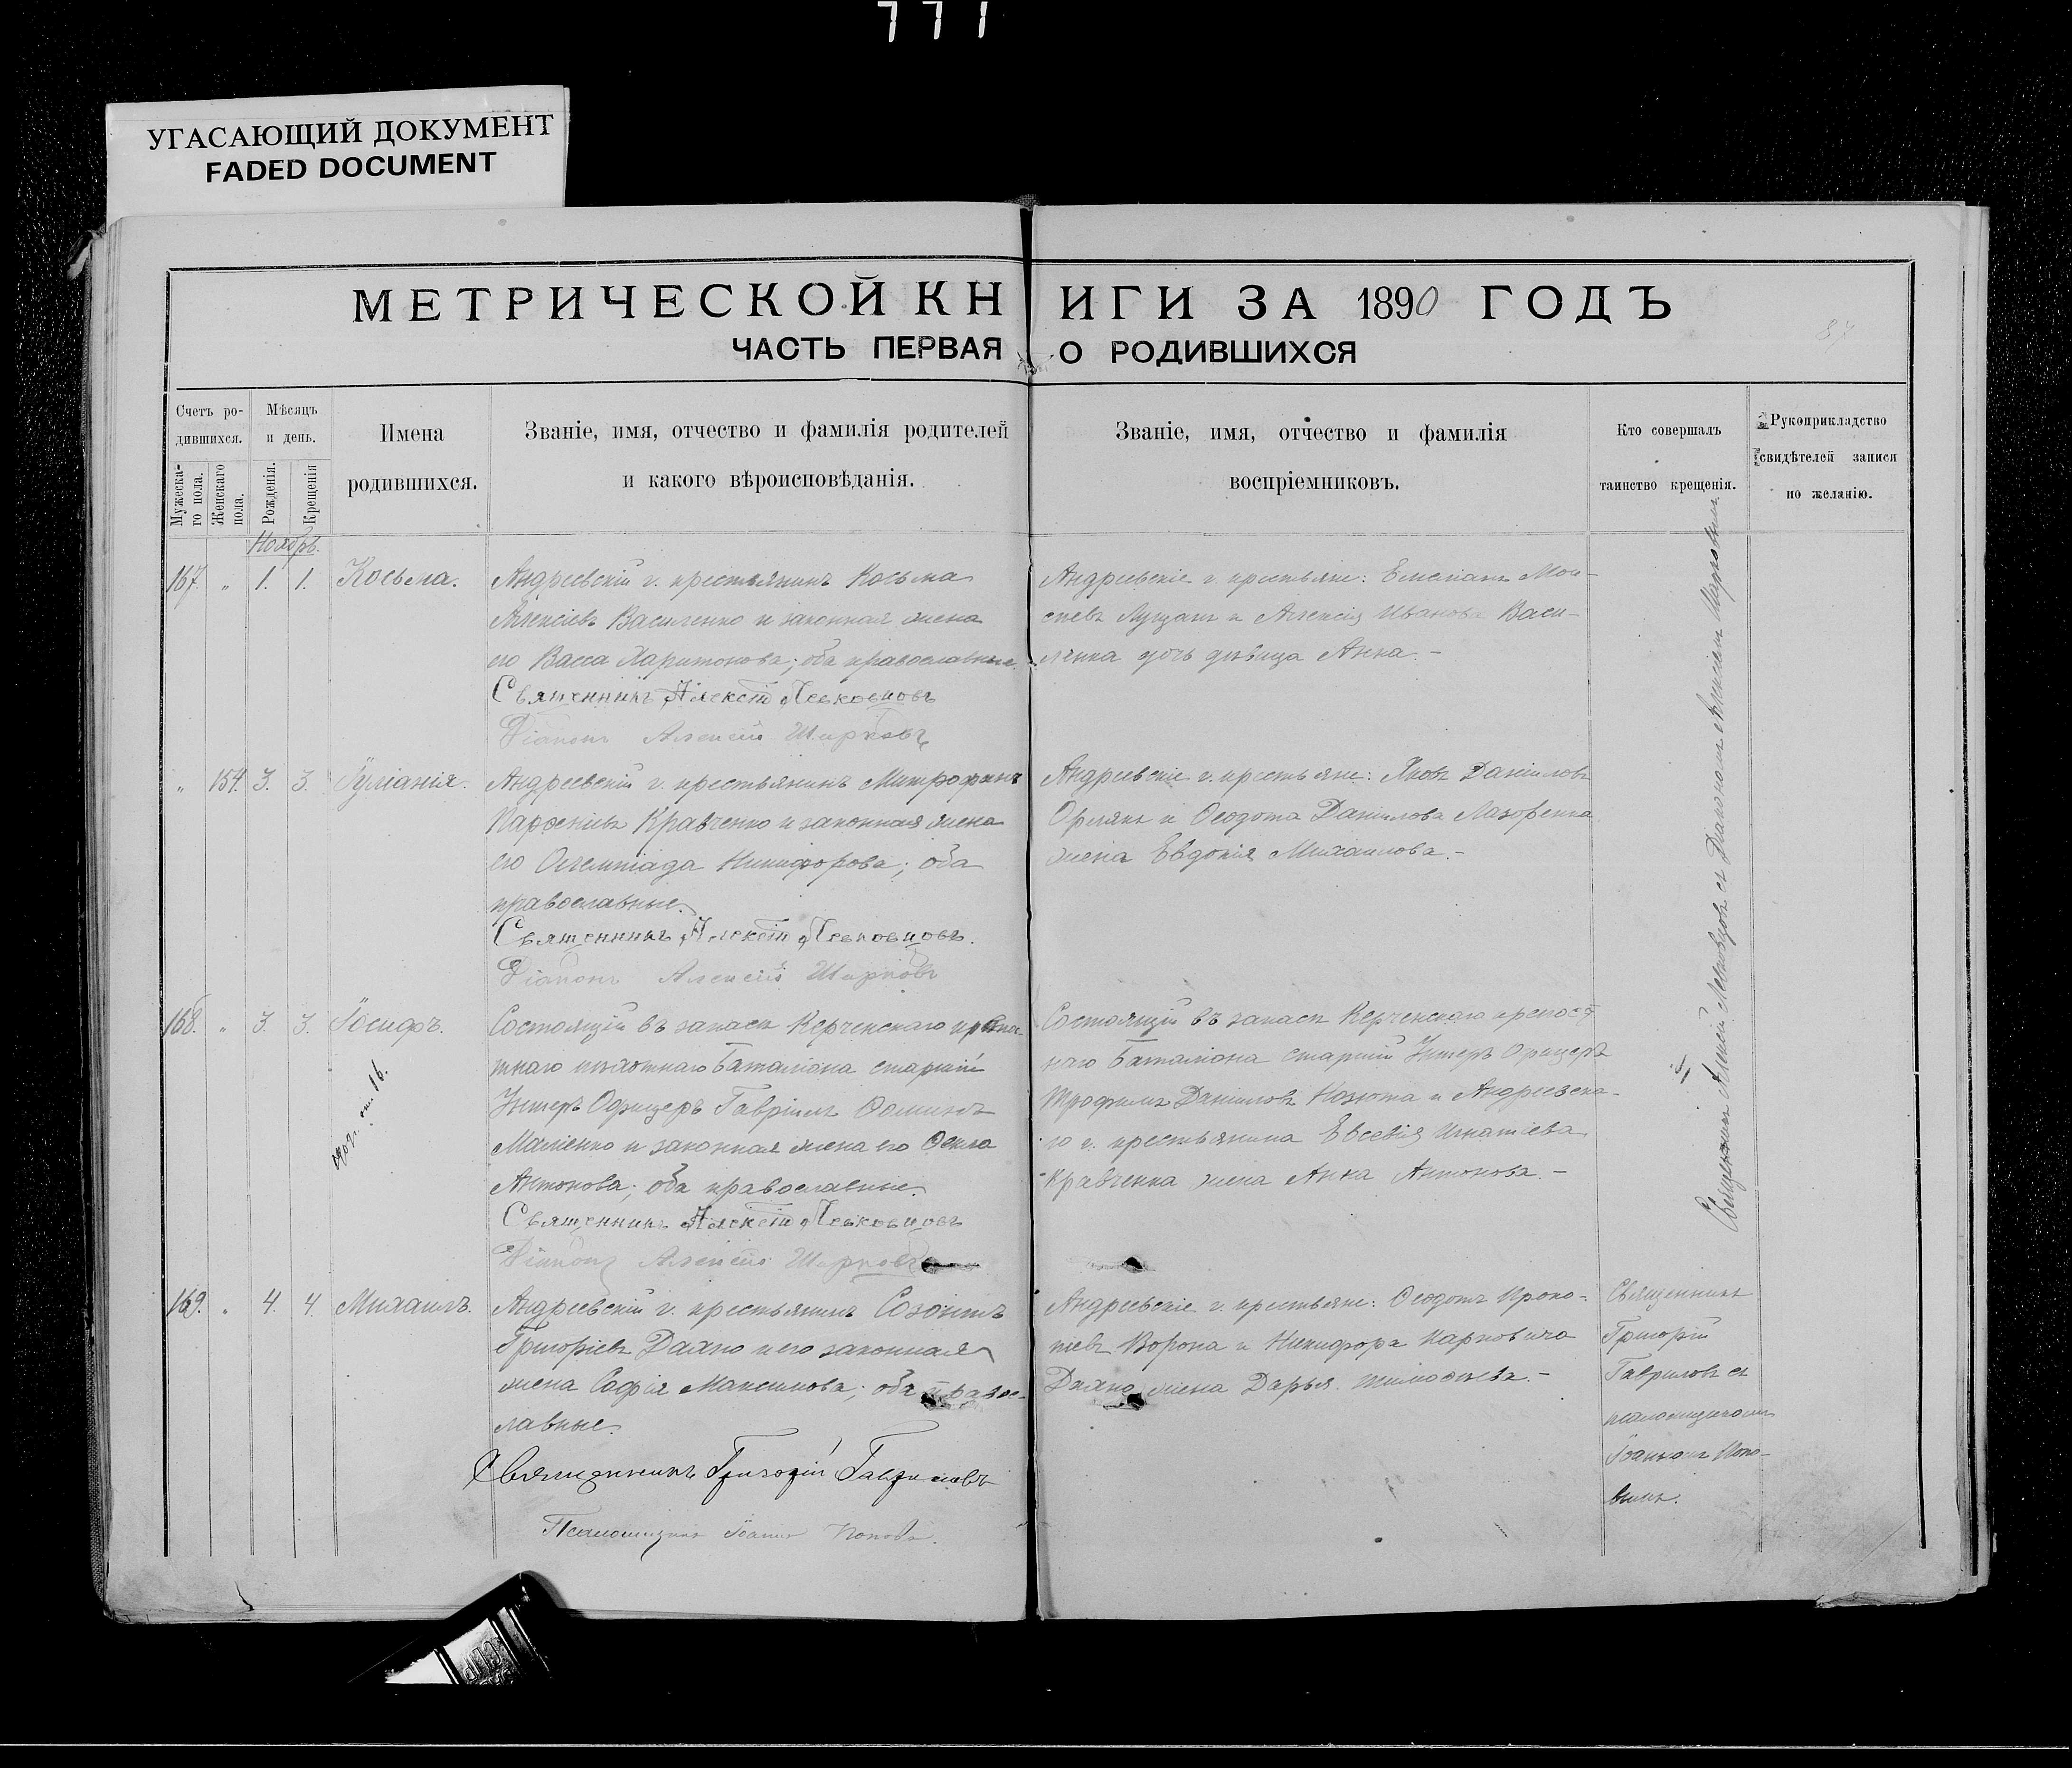 777
УГАСАЮЩИЙ ДОКУМЕНТ
FADED DOCUMENT
МЕТРИЧЕСКОЙ КНИГИ ЗА 1890 ГОДЪ
ЧАСТЬ ПЕРВАЯ О РОДИВШИХСЯ
87
Счетъ ро-
дившихся.
Мужеска-
го пола.
Женскаго
пола.
Мѣсяцъ
и день.
Рожденія.
Крещенія
Имена
родившихся.
Званіе, имя, отчество и фамилія родителей
и какого вѣроисповѣданія.
Званіе, имя, отчество и фамилія
воспріемниковъ.
Кто совершалъ
таинство крещенія.
Рукоприкладство
свидѣтелей записи
по желанію.
Ноябрь.
167. " 1. 1. Косьма.
Андреевскій г. крестьянинъ Косьма
Алексіевъ Василенко и законная жена
его Васса Харитонова; оба православные.
Священникъ Алексій Левковцовъ
Діаконъ Алексій Шырковъ
Андреевскіе г. крестьяне: Емеліанъ Мои-
сеевъ Лущанъ и Алексія Иванова Васи-
ленка дочь дѣвица Анна.-
" 154. 3. 3. Іуліанія.
Андреевскій г. крестьянинъ Митрофанъ
Парѳеніевъ Кравченко и законная жена
его Олимпіада Никифорова; оба
православные.
Священникъ Алексій Левковцовъ.
Діаконъ Алексій Шырковъ
Андреевскіе г. крестьяне: Яковъ Даніиловъ
Орлякъ и Ѳеодота Даніилова Лазоренка
жена Евдокія Михаилова.-
168. " 3. 3. Іосифъ.
16.
Состоящій въ запасѣ Керченскаго крѣпо-
тнаго пѣхотнаго Баталіона старшій
Унтеръ Офицеръ Гавріилъ Ѳоминъ
Маліенко и законная жена его Ѳекла
Антонова; оба православные.
Священникъ Алексій Левковцовъ
Діаконъ Алексій Шырковъ
Состоящій въ запасѣ Керченскаго крепост
наго Баталіона старшій Унтеръ Офицеръ
Трофимъ Даніиловъ и Андреевска-
го г. крестьянина Евсевія Игнатіева
Кравченка жена Анна Антонова.-
Священникъ Алексій Левковцовъ съ Діакономъ Алексіемъ Шырковымъ.
169. " 4. 4. Михаилъ.
Андреевскій г. крестьянинъ Созонтъ
Григоріевъ Дахно и его законная
жена Софія Максимова; оба право-
славные.
Священникъ Григорій Гавриловъ
Псаломщикъ Іоаннъ Поповъ.
Андреевскіе г. крестьяне: Ѳеодотъ Проко-
піевъ Ворона и Никифора Карповича
Дахно жена Дарья Тимоѳеева.-
Священникъ
Григорій
Гавриловъ съ
псаломщикомъ
Іоанномъ Попо-
вымъ.